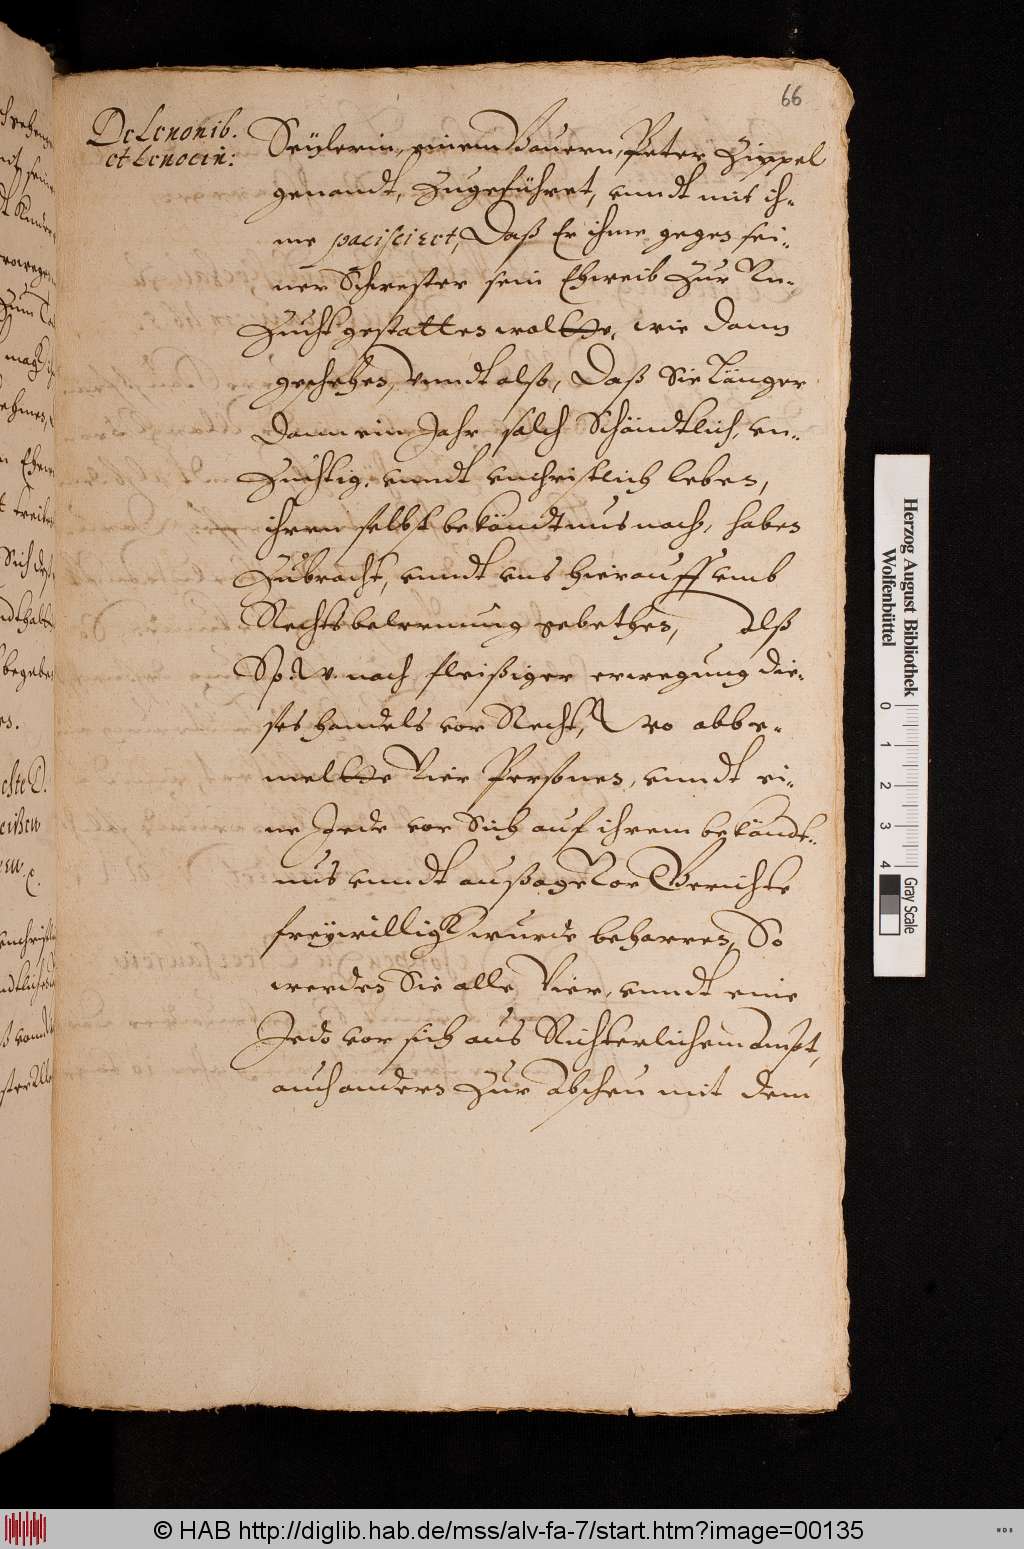 66
De Lenonib.
et Lenocin:
Seülerin, einem Bauern, Peter Zippel
genandt, Zugeführet, vnndt mit ih-
me paciscirt, Daß Er ihme gegen sei-
ner Schwester sein Eheweib Zur Vn-
Zucht gestatten wolte, wie dann
geschehen, vnndt also, Daß Sie länger
Dann ein Jahr solch Schändtlich, vn-
Züchtig, vnndt vnchristlich leben,
ihrem selbst bekändtnus nach, haben
Zubracht, vnndt vns hierauff vmb
Rechts belernung gebethen, Alß
Sp: W. nach fleißiger erwegung die-
ses handels vor Recht, wo obbe-
melte Vier Personen, vnndt ei-
ne Jede vor Sich auf ihrem bekändt-
nus vnndt außage Vor Gerichte
freÿwillig würde beharren, So
werden Sie alle Vier, vnndt eine
Jede vor sich aus Richterlichem Ampt,
auch anders Zur Abscheu mit dem
Herzog August Bibliothek
Wolfenbüttel
0 1 2 3 4
Gray Scale
© HAB http://diglib.hab.de/mss/alv-fa-7/start.htm?image=00135